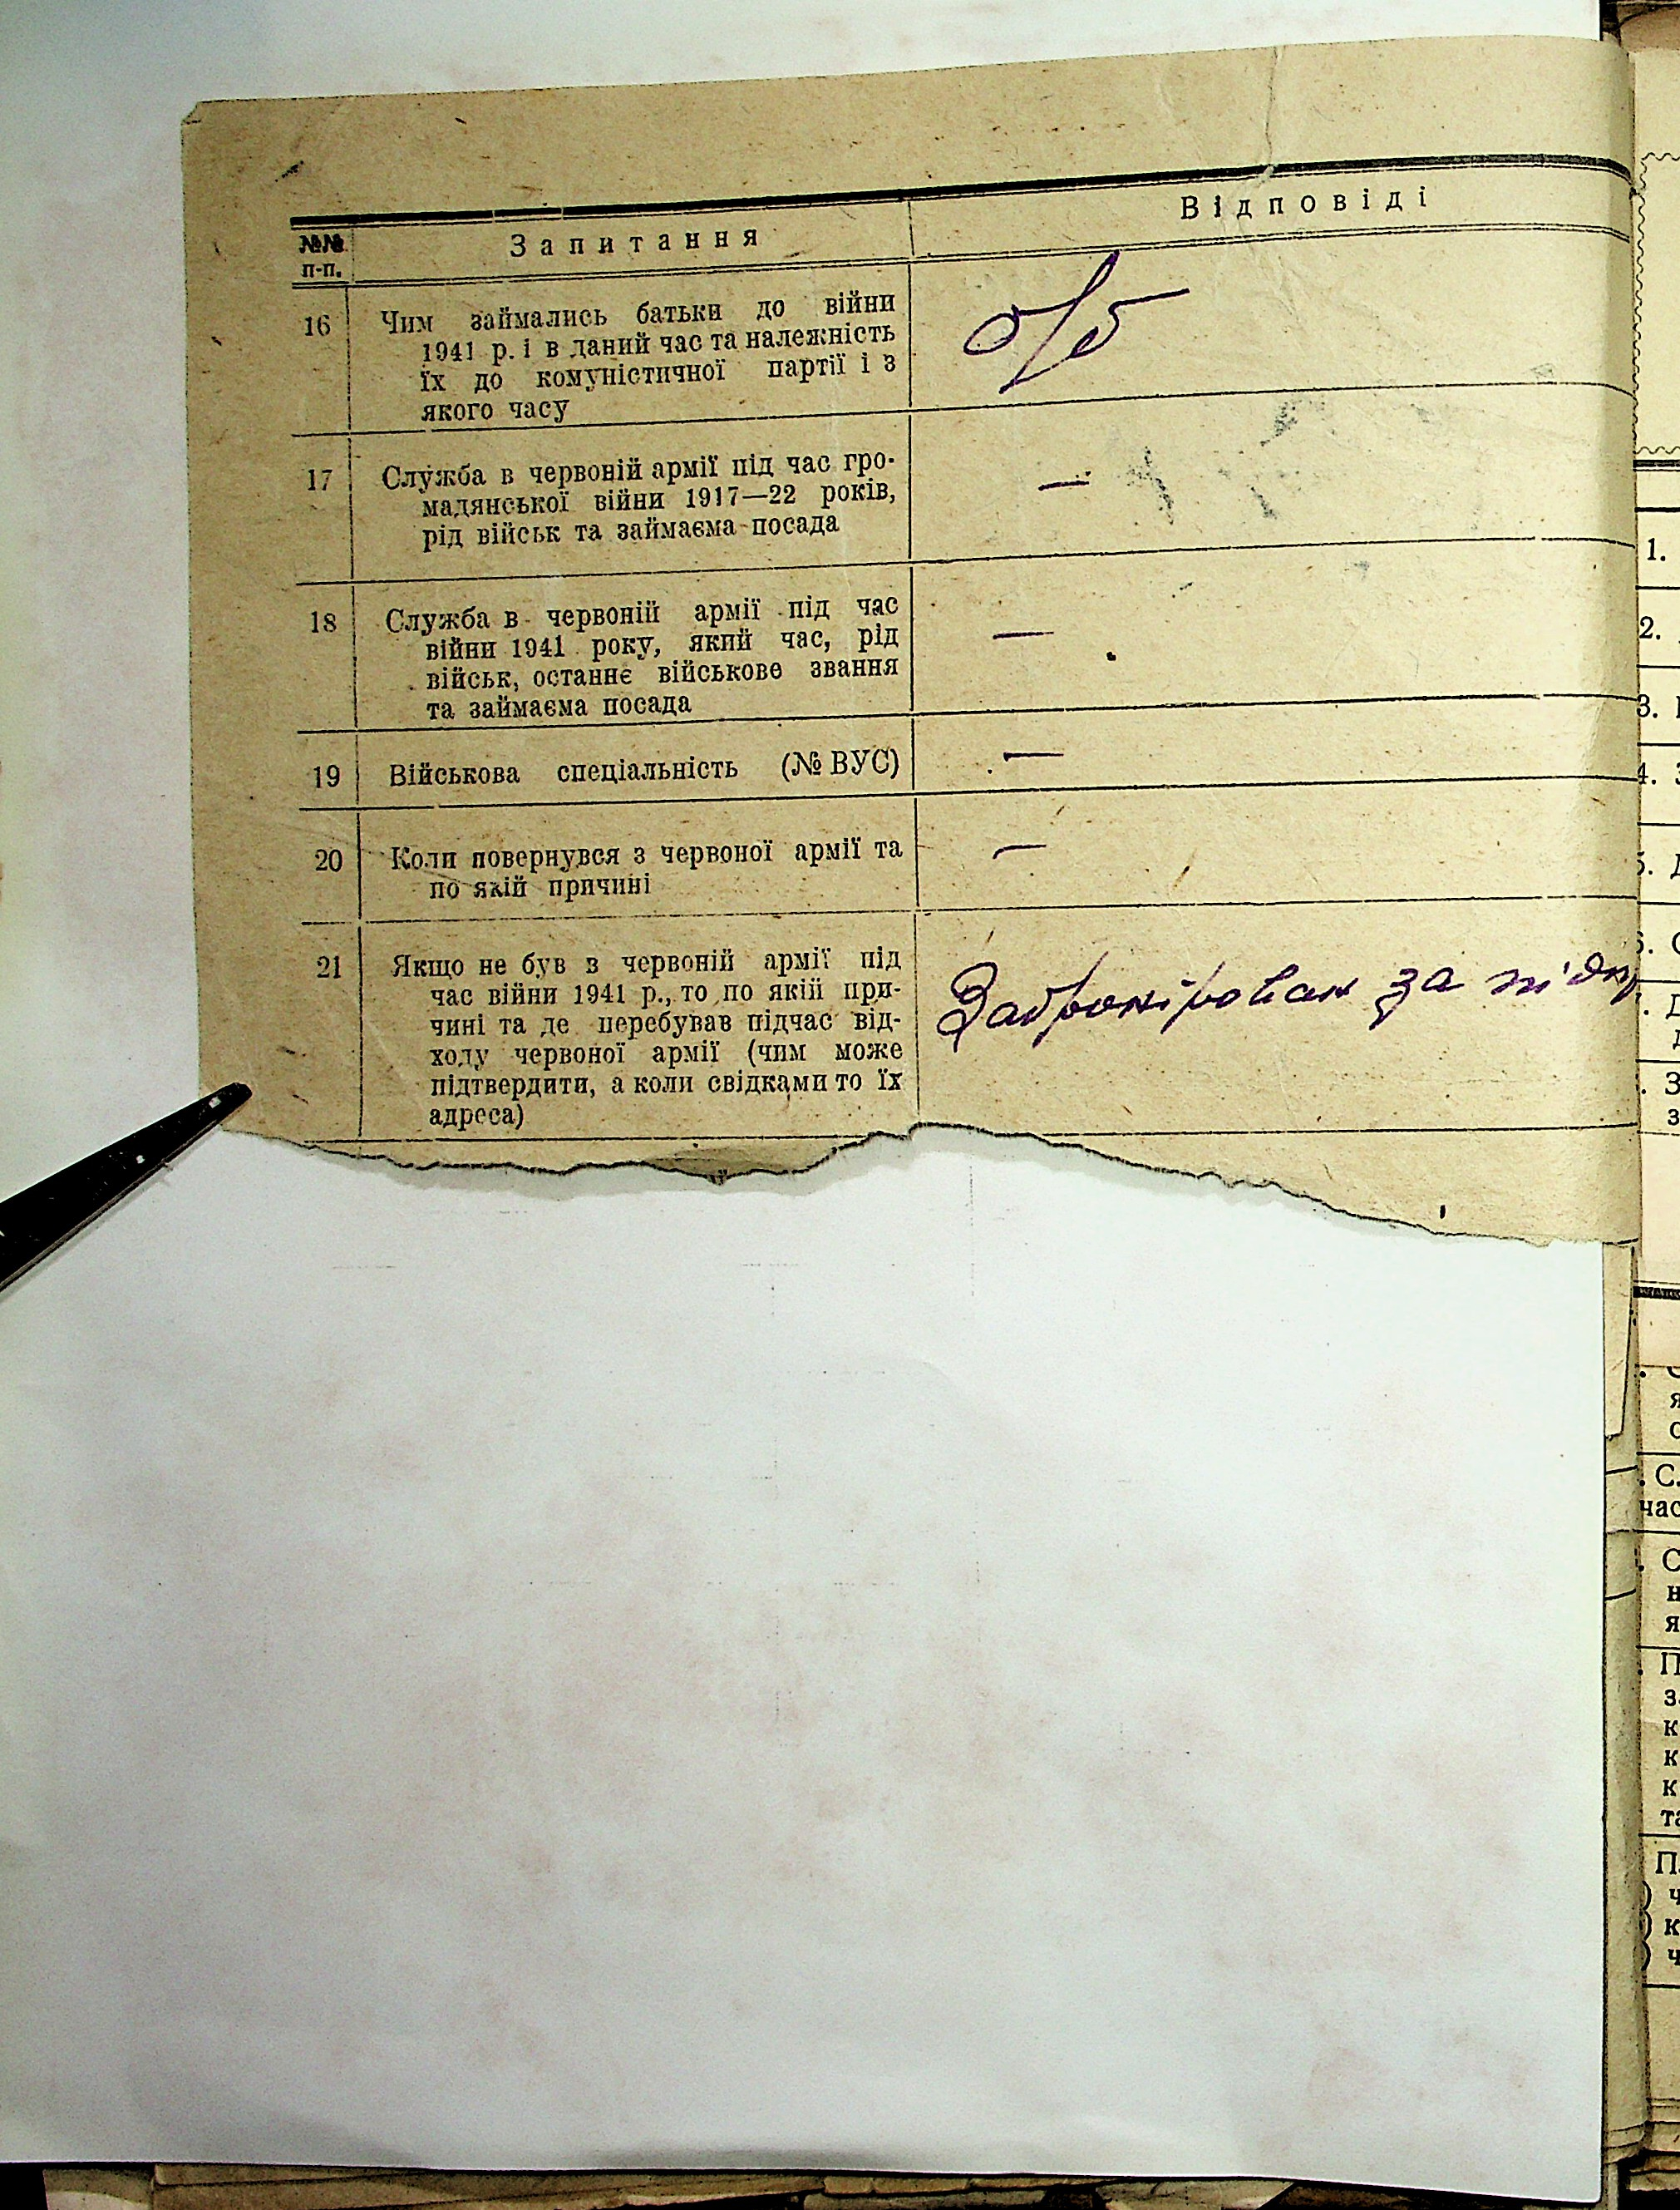 №№ п-п.
Запитання
Відповіді
16
Чим займались батьки до війни
1941 р. і в даний час та належність
їх до комуністичної партії і з
якого часу
о/б
17
Служба в червоній армії під час гро-
мадянської війни 1917—22 років,
рід військ та займаєма посада
—
18
Служба в червоній армії під час
війни 1941 року, який час, рід
військ, останнє військове звання
та займаєма посада
—
19
Військова спеціальність (№ ВУС)
—
20
Коли повернувся з червоної армії та
по якій причині
—
21
Якщо не був в червоній армії під
час війни 1941 р., то по якій при-
чині та де перебував підчас від-
ходу червоної армії (чим може
підтвердити, а коли свідками то їх
адреса)
Забронірован за підпр
1.
2.
3.
4.
5.
6.
С.
час